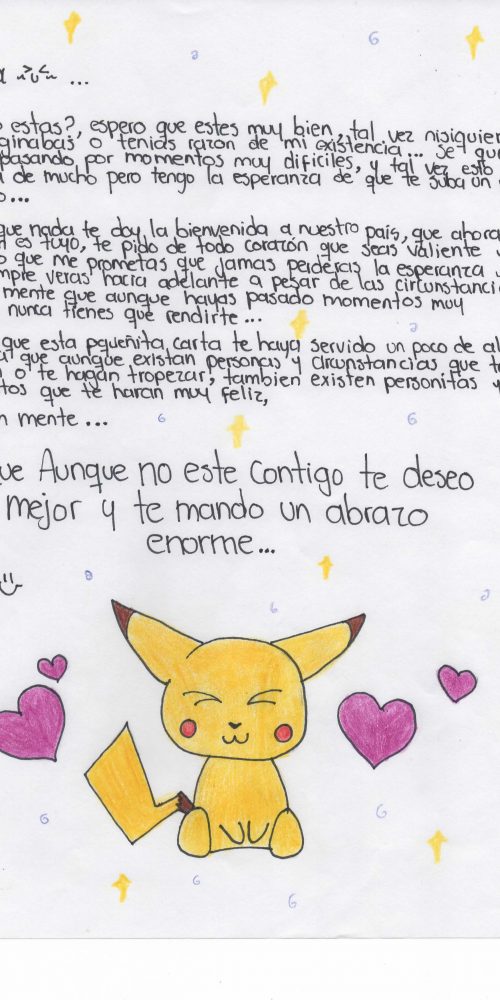 a ...
o estas?, espero que estes muy bien, tal vez nisiquier
ginabas o tenias razon de mi existencia... se que
pasando por momentos muy dificiles, y tal vez esto
a de mucho pero tengo la esperanza de que te suba un
o...
que nada te doy la bienvenida a nuestro país, que ahora
n es tuyo, te pido de todo corazón que seas valiente
o que me prometas que jamas perderas la esperanza
mpre veras hacia adelante a pesar de las circunstanci
mente que aunque hayas pasado momentos muy
nunca tienes que rendirte...
que esta pqueñita carta te haya servido un poco de al
a que aunque existan personas y circunstancias que t
n o te hagan tropezar, tambien existen personitas y
tos que te haran muy feliz,
n mente...
ue Aunque no este contigo te deseo
mejor y te mando un abrazo
enorme...